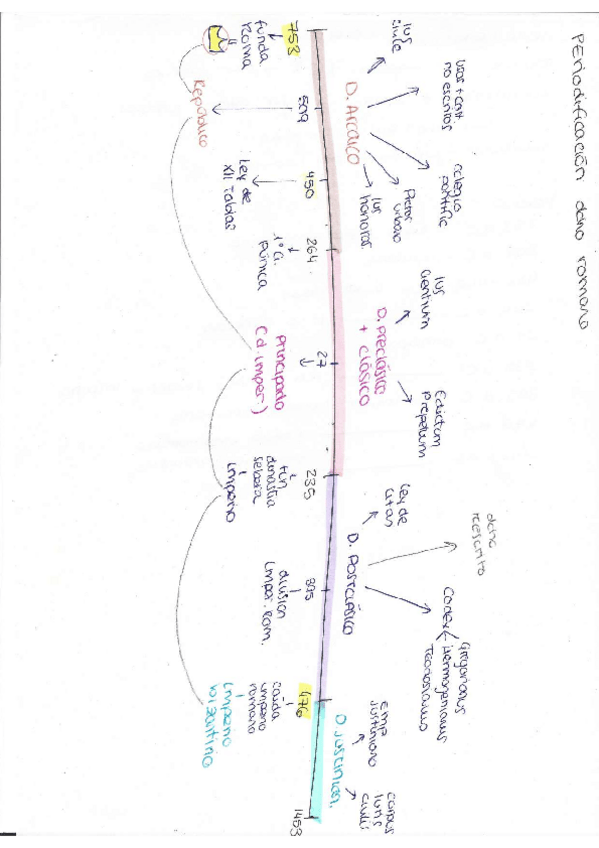 Periodificación dcho romano
usos + cost.
no escritos
colegio
pontific
ius
civile
Pretor
urbano
ius
honorar.
D. Arcaico
ius
Gentium
Edictum
Perpetuum
D. Preclásico
+ clásico
dcho
reescrito
Ley de
citas
Codex
Gregorianus
Hermogenianus
Teodosianus
D. Postclásico
Emp
Justiniano
corpus
iuris
civilis
D. Justinian.
753
509
450
264
27
235
395
476
1453
funda.
Roma
República
Ley de
XII Tablas
1ª G.
Púnica
Principado
(d. imper.)
fin
dinastía
Severa
imperio
división
imper. Rom.
caída
imperio
romano
imperio
bizantino